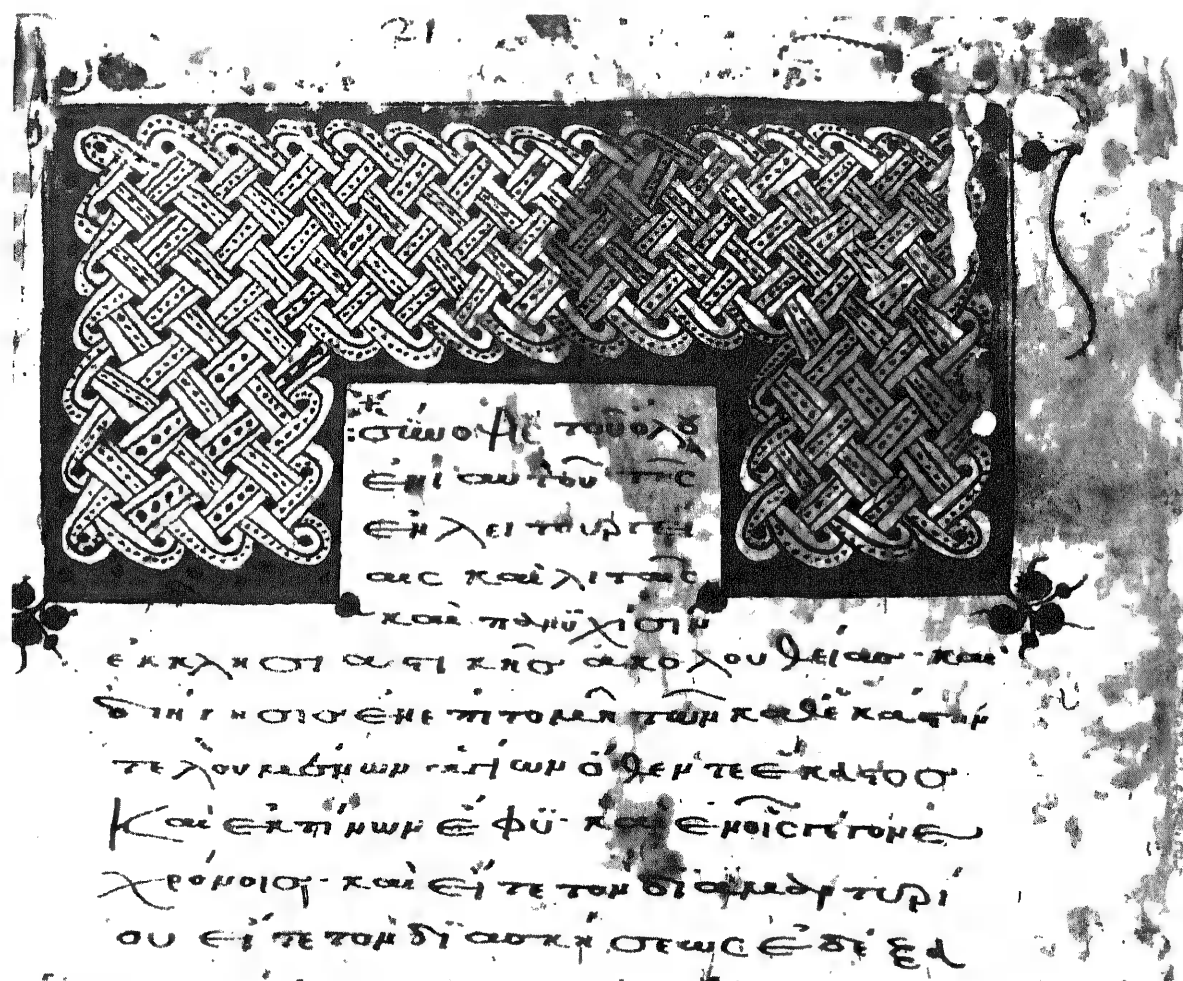 21
σύνοψις τοῦ ὅλου
ἐνιαυτοῦ τῆς
ἐν λειτουργί
αις καὶ λιταῖς
καὶ παννυχίσιν
ἐκκλησιαστικῆς ἀκολουθείας· καὶ
διήγησις ἐν ἐπιτομῇ τῶν καθ' ἑκάστην
τελουμένων ἁγίων ὅθεν τε ἕκαστος
Καὶ ἐκ τίνων ἔφυ· καὶ ἐν οἷς γέγονε
χρόνοις· καὶ εἴτε τὸν διὰ μαρτυρί
ου εἴτε τὸν δι' ἀσκήσεως ἐδέξα